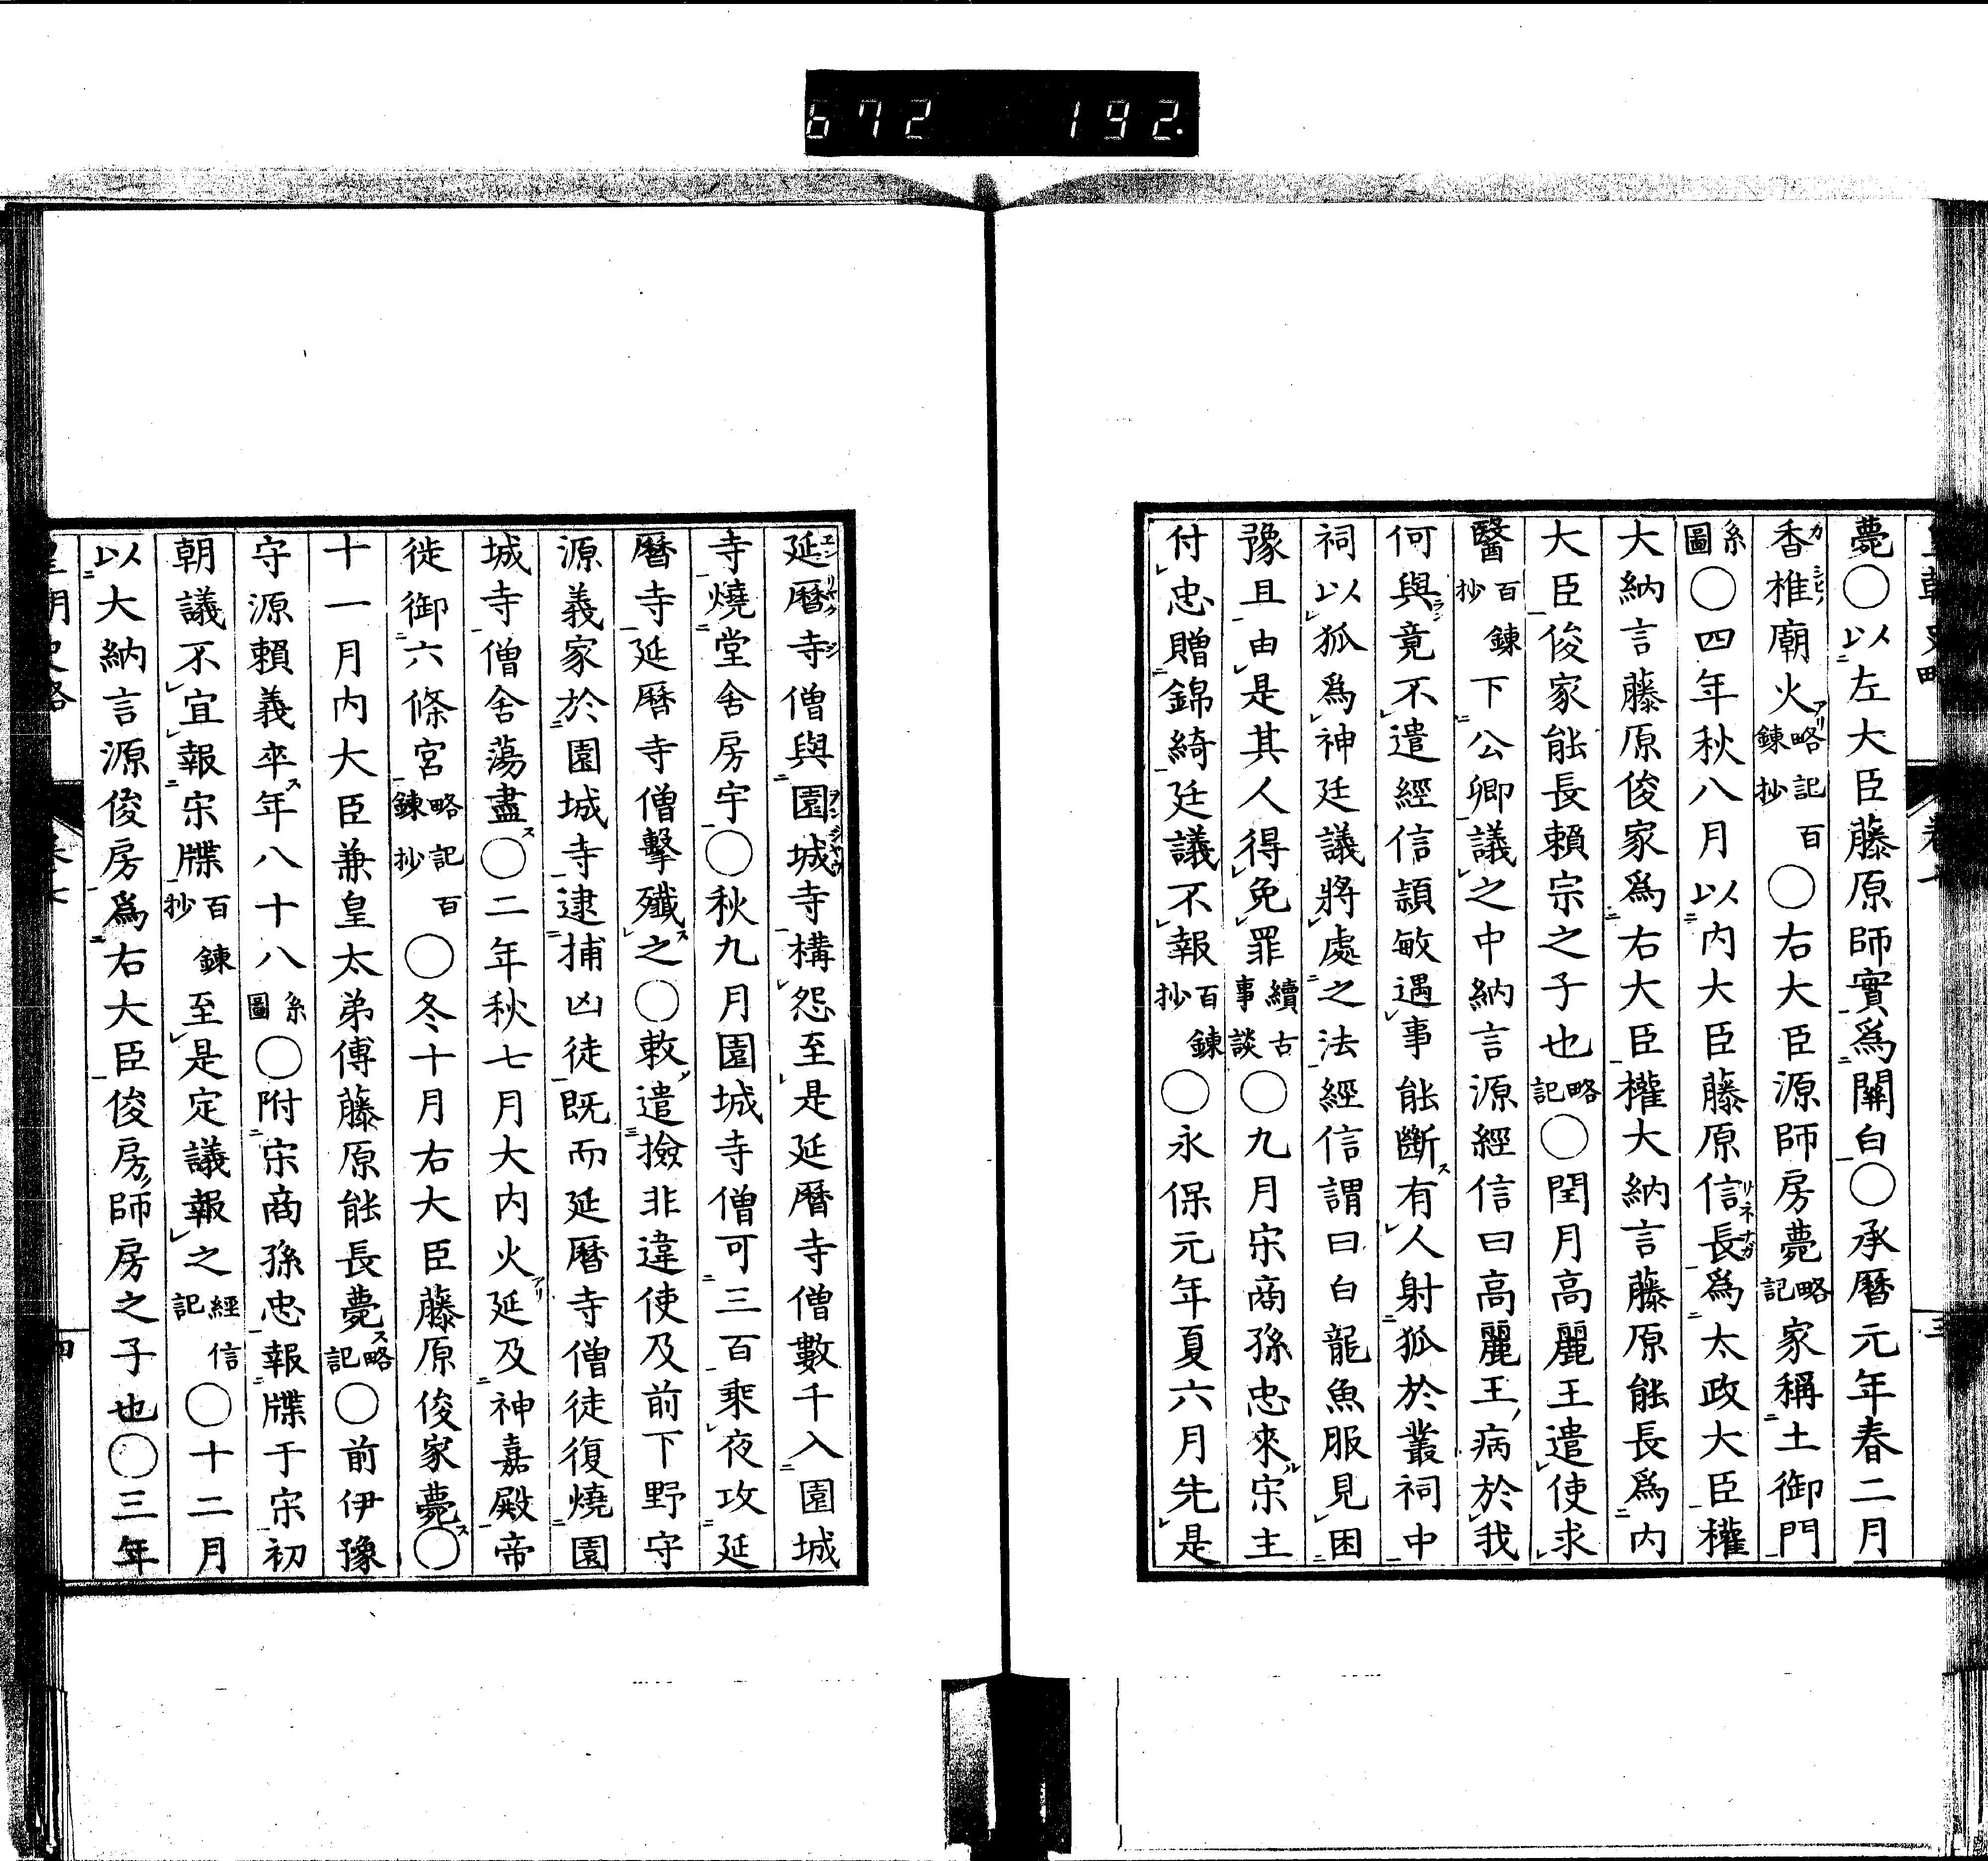 672 192.
薨○以左大臣藤原師實爲關白○承曆元年春二月
香椎廟火略記百鍊抄○右大臣源師房薨略記家稱土御門
系圖○四年秋八月以內大臣藤原信長爲太政大臣權
大納言藤原俊家爲右大臣權大納言藤原能長爲內
大臣俊家能長賴宗之子也略記○閏月高麗王遣使求
醫百鍊抄下公卿議之中納言源經信曰高麗王病於我
何與竟不遣經信頴敏遇事能斷有人射狐於叢祠中
祠以狐爲神廷議將處之法經信謂曰白龍魚服見困
豫且由是其人得免罪續古事談○九月宋商孫忠來宋主
付忠贈錦綺廷議不報百鍊抄○永保元年夏六月先是
延曆寺僧與園城寺構怨至是延曆寺僧數千入園城
寺燒堂舍房宇○秋九月園城寺僧可三百乘夜攻延
曆寺延曆寺僧擊殲之○敕遣撿非違使及前下野守
源義家於園城寺逮捕凶徒既而延曆寺僧徒復燒園
城寺僧舍蕩盡○二年秋七月大內火延及神嘉殿帝
徙御六條宮略記百鍊抄○冬十月右大臣藤原俊家薨○
十一月內大臣兼皇太弟傅藤原能長薨略記○前伊豫
守源賴義卒年八十八系圖○附宋商孫忠報牒于宋初
朝議不宜報宋牒百鍊抄至是定議報之經信記○十二月
以大納言源俊房爲右大臣俊房師房之子也○三年